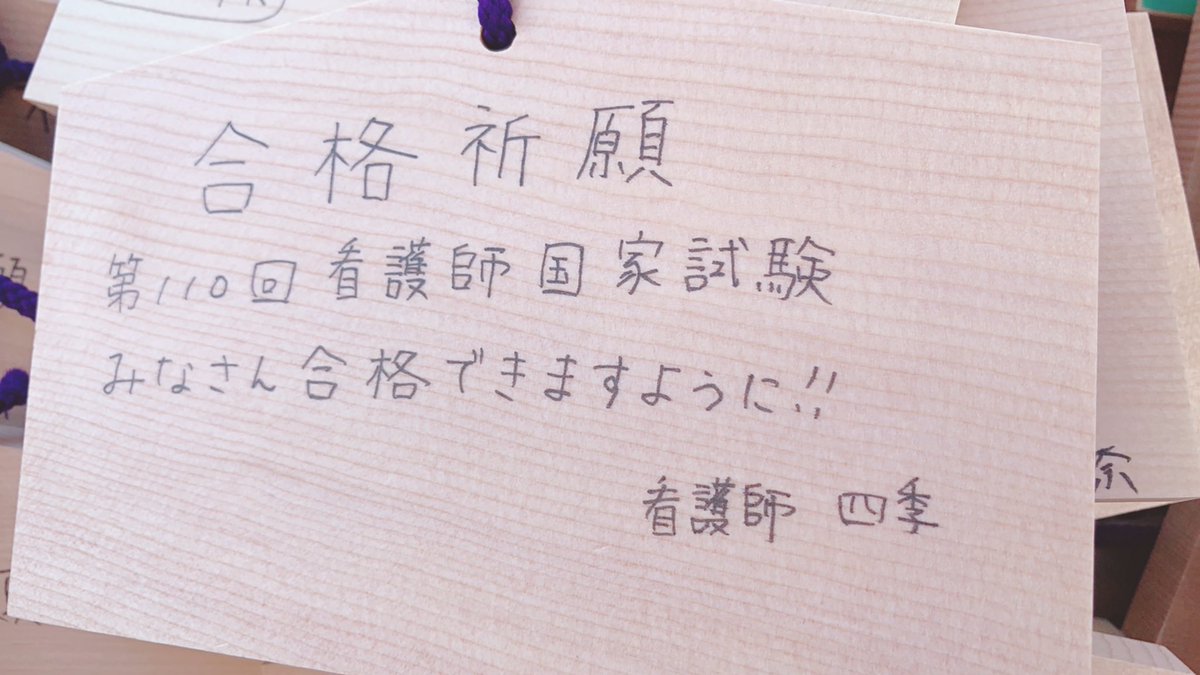 合格祈願
第110回看護師国家試験
みなさん合格できますように!!
看護師 四季
奈